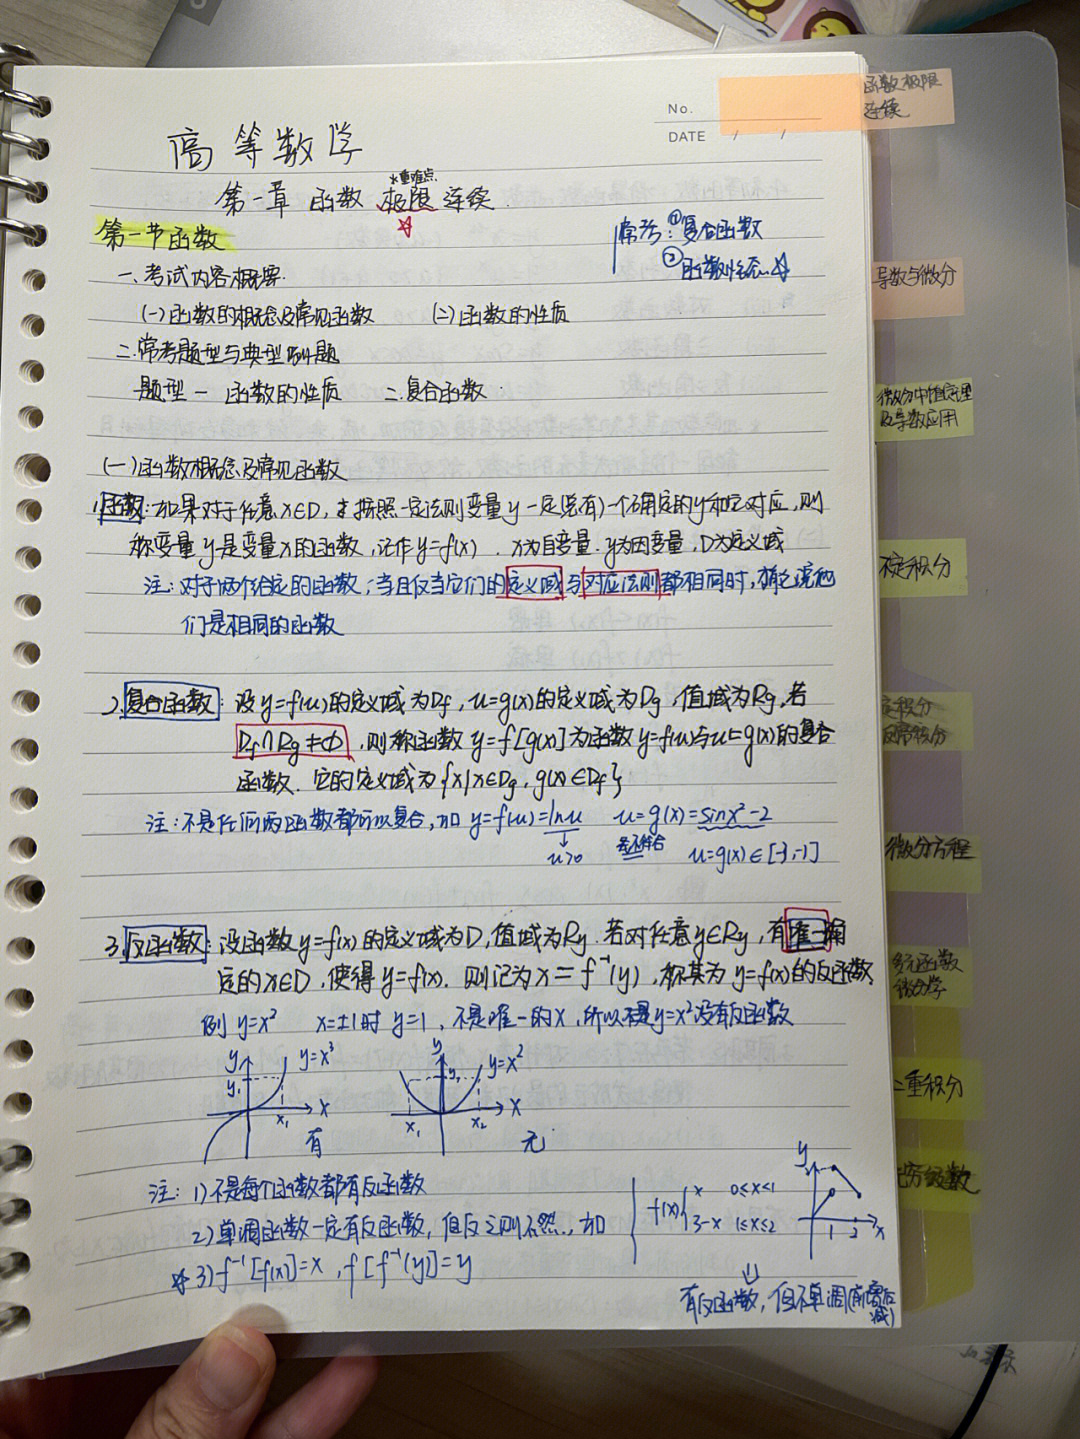 No.
DATE / /
高等数学
*重难点
第一章 函数 极限 连续.
第一节函数
常考:①复合函数
②函数性态☆
一、考试内容概要
(一)函数的概念及常见函数 (二)函数的性质
二.常考题型与典型例题
题型一 函数的性质 二.复合函数
(一)函数概念及常见函数
1.函数:如果对于任意x∈D,按照一定法则变量y一定(总有)一个确定的y和它对应,则
称变量y是变量x的函数,记作y=f(x). x为自变量.y为因变量,D为定义域
注:对于两个给定的函数,当且仅当它们的定义域与对应法则都相同时,称之说他
们是相同的函数
2.复合函数:设y=f(u)的定义域为Df,u=g(x)的定义域为Dg,值域为Rg,若
Df∩Rg≠Φ,则称函数y=f[g(x)]为函数y=f(u)与u=g(x)的复合
函数.它的定义域为{x|x∈Dg,g(x)∈Df}
注:不是任何两函数都可以复合,如y=f(u)=lnu u=g(x)=sinx²-2
↓
u>0 u=g(x)∈[-3,-1]
3.反函数:设函数y=f(x)的定义域为D,值域为Ry.若对任意y∈Ry,有唯一确
定的x∈D,使得y=f(x).则记为x=f⁻¹(y),称其为y=f(x)的反函数
例 y=x² x=±1时 y=1,不是唯一的x,所以y=x²没有反函数
y y=x³ y y=x²
y₁ y₁
x₁ x x₁ x₂ x
有 无
注:1)不是每个函数都有反函数
2)单调函数一定有反函数,但反之则不然,如
f(x){x 0≤x<1
3-x 1≤x≤2
y
2
1 2 x
☆3)f⁻¹[f(x)]=x,f[f⁻¹(y)]=y
有反函数,但不单调(前增后减)
函数极限
连续
导数与微分
微分中值定理
及导数应用
不定积分
定积分
反常积分
微分方程
多元函数
微分学
二重积分
无穷级数